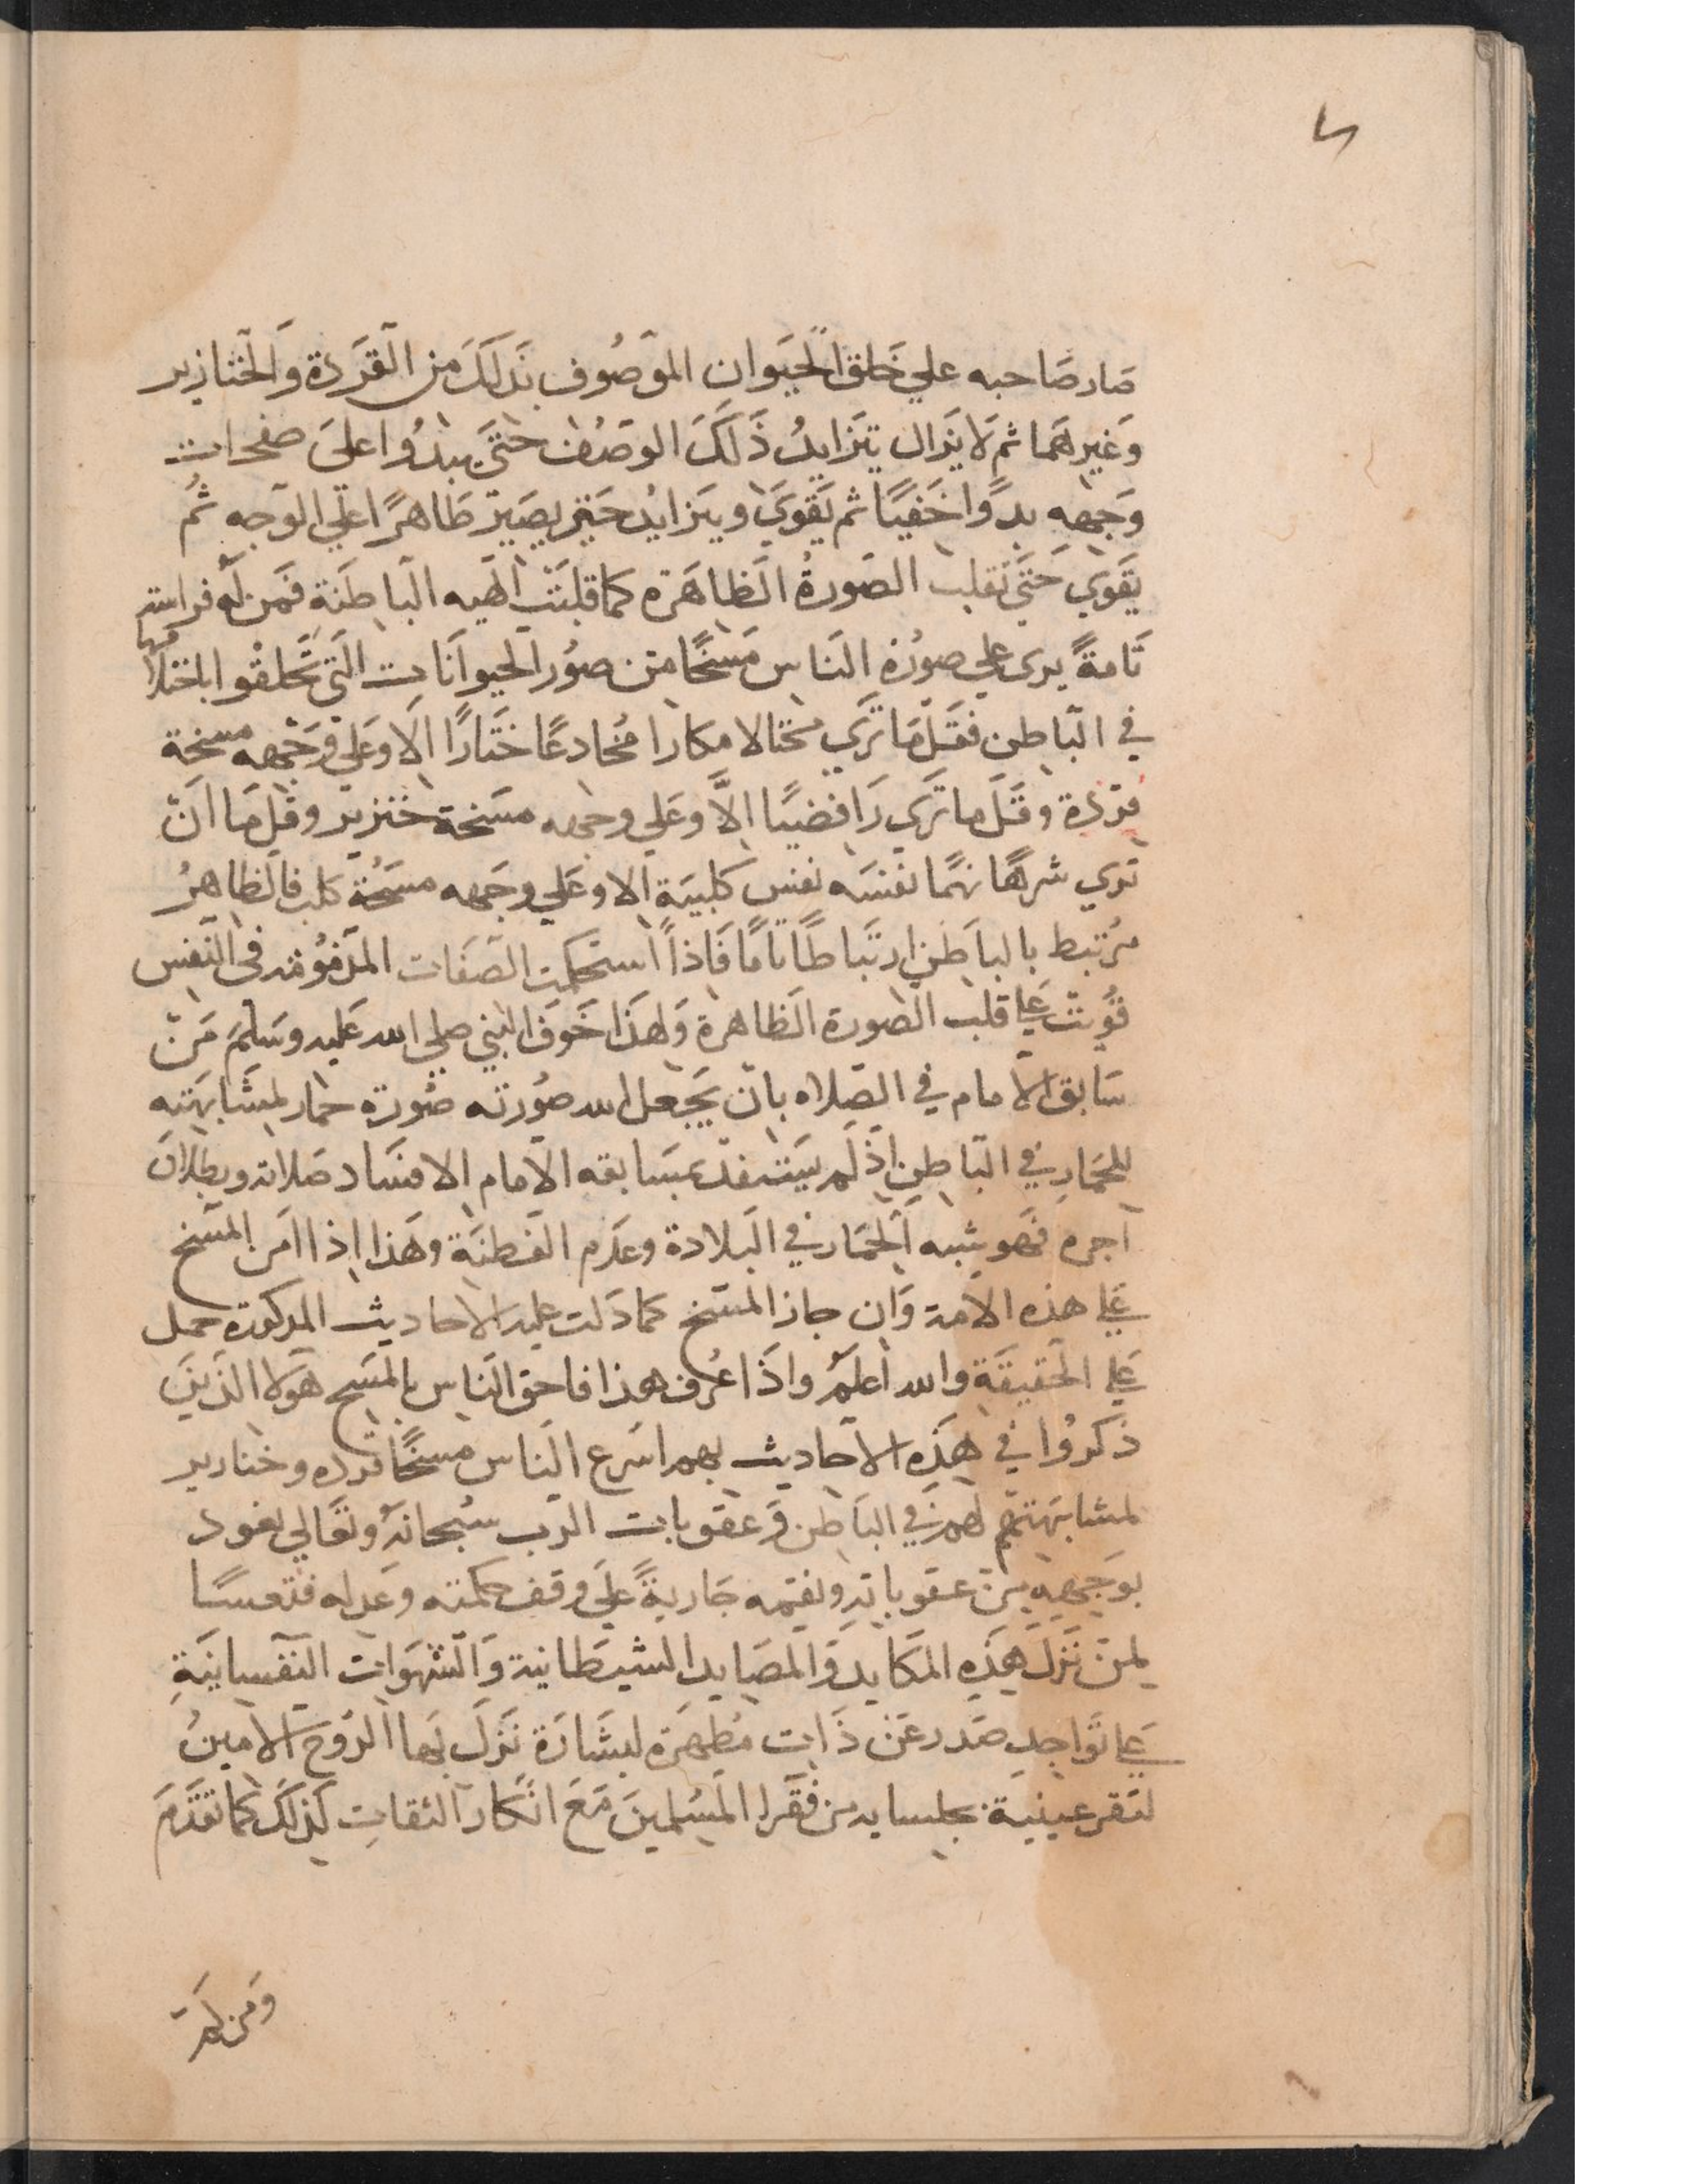 صار صاحبه علي خلق الحيوان الموصوف بذلك من القردة والخنازير
وغيرهما ثم لا يزال يتزايد ذلك الوصف حتى يبدوا على صفحات
وجهه بدوا خفيا ثم يقوي ويتزايد حتي يصير ظاهرا على الوجه ثم
يقوي حتى تقلب الصورة الظاهرة كما قلبت الهيه الباطنة فمن له فراسة
تامة يرى على صورة الناس مسخا من صور الحيوانات التي تخلقوا باخلاقها
في الباطن فقل ما تري محتالا مكارا مخادعا ختارا الا وعلي وجهه مسخة
قردة وقل ما تري رافضيا الا وعلي وجهه مسخة خنزير وقل ما ان
تري شرها نهما نفسه نفس كلبية الا وعلي وجهه مسخة كلب فالظاهر
مرتبط بالباطن ارتباطا تاما فاذا استحكمت الصفات المذمومة في النفس
قويت على قلب الصورة الظاهرة ولهذا خوف النبي صلى الله عليه وسلم من
سابق الامام في الصلاه بان يجعل الله صورته صورة حمار لمشابهته
للحمار في الباطن اذ لم يستفد بمسابقه الامام الا فساد صلاته وبطلان
اجره فهو شبه الحمار في البلادة وعدم الفطنة وهذا اذا امن المسخ
على هذه الامة وان جاز المسخ كما دلت عليه الاحاديث المذكورة حمل
على الحقيقة والله اعلم واذا عرف هذا فاحق الناس بالمسخ هولا الذين
ذكروا في هذه الاحاديث بهم اسرع الناس مسخا قردة وخنازير
لمشابهتهم لهم في الباطن وعقوبات الرب سبحانه وتعالي نعوذ
بوجهه من عقوباته ونقمه جارية على وفق حكمته وعدله فتعسا
لمن نزل هذه المكايد والمصايد الشيطانية والشهوات النفسانية
على تواجد صدر عن ذات مطهرة لبشارة نزل بها الروح الامين
لتقر عينية بجلسايه من فقرا المسلمين مع انكار الثقات لذلك كما تقدم
ومن لم